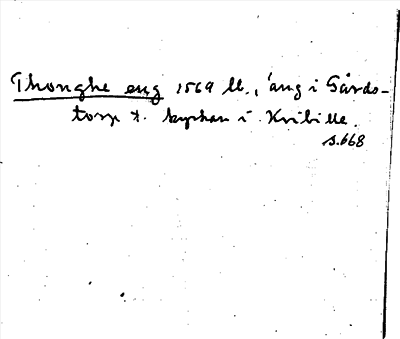 Thonghe eng 1569 ll., äng i Gårds-
torp t. kyrkan i Kvibille.
s.668